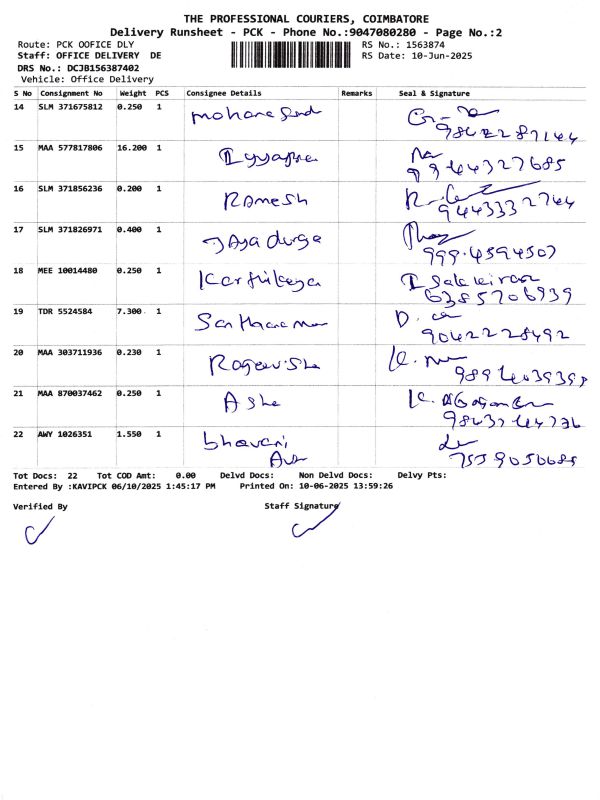 THE PROFESSIONAL COURIERS, COIMBATORE
Delivery Runsheet - PCK - Phone No.:9047080280 - Page No.:2
Route: PCK OOFICE DLY RS No.: 1563874
Staff: OFFICE DELIVERY DE RS Date: 10-Jun-2025
DRS No.: DCJB156387402
Vehicle: Office Delivery
S No Consignment No Weight PCS Consignee Details Remarks Seal & Signature
14 SLM 371675812 0.250 1
15 MAA 577817806 16.200 1
9944327685
16 SLM 371856236 0.200 1 Ramesh
9443332744
17 SLM 371826971 0.400 1 Jaya durga
18 MEE 10014480 0.250 1 Karthikeya
6385706939
19 TDR 5524584 7.300 1
9042228492
20 MAA 303711936 0.230 1
21 MAA 870037462 0.250 1 Asha
22 AWY 1026351 1.550 1 bhavani
Tot Docs: 22 Tot COD Amt: 0.00 Delvd Docs: Non Delvd Docs: Delvy Pts:
Entered By :KAVIPCK 06/10/2025 1:45:17 PM Printed On: 10-06-2025 13:59:26
Verified By Staff Signature